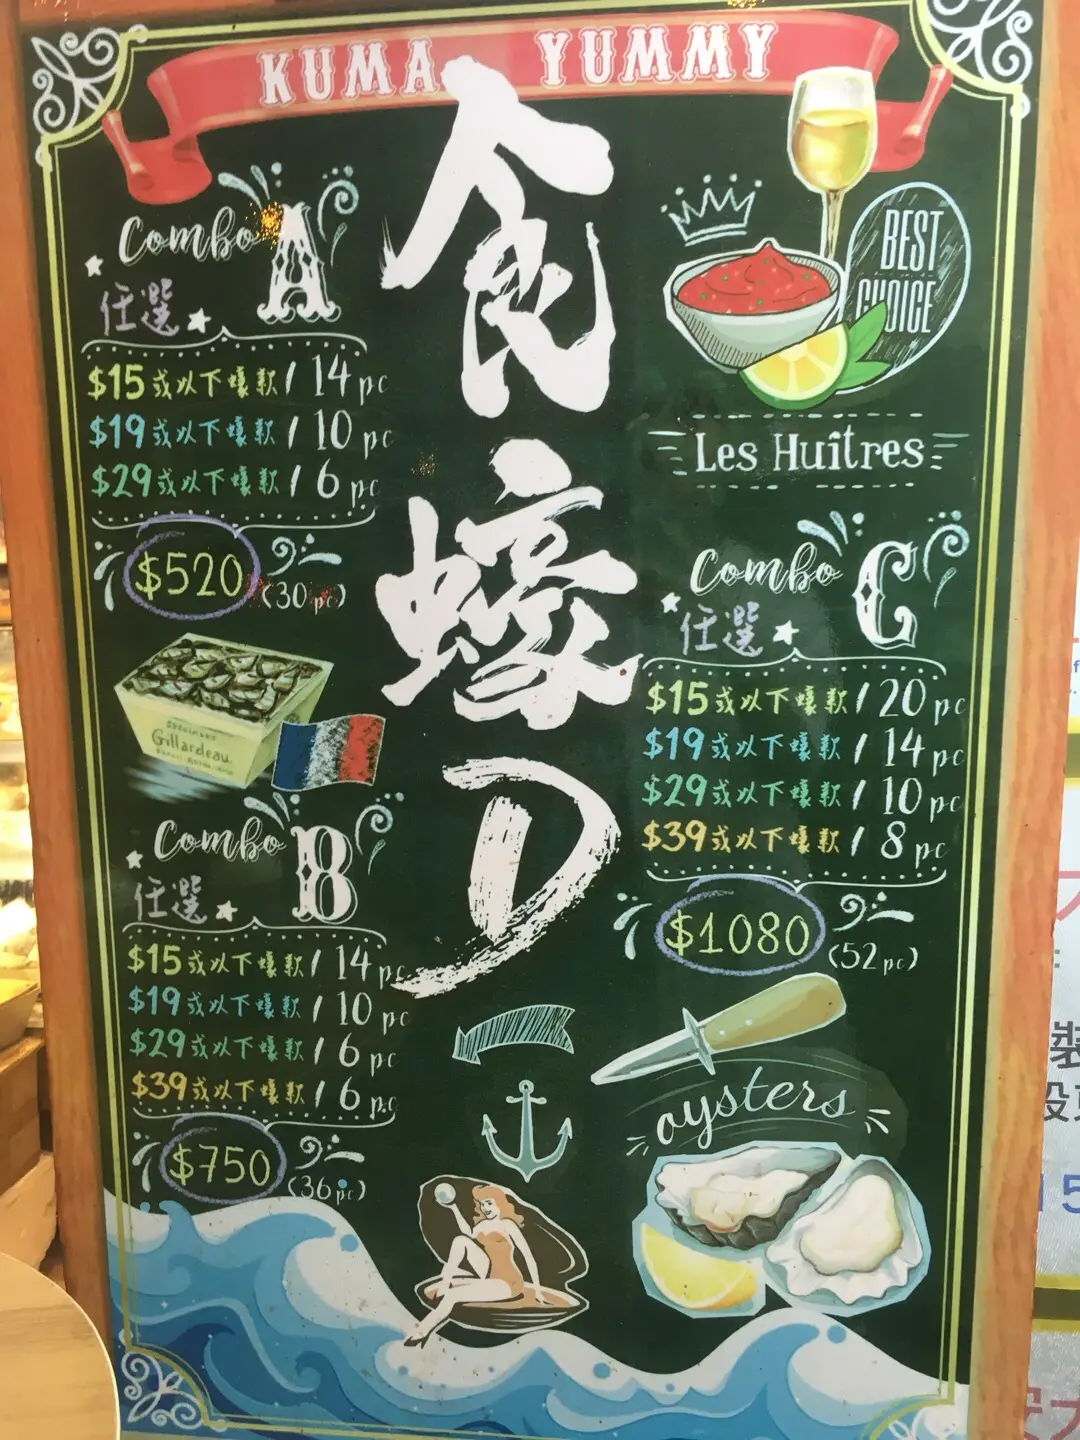 KUMA YUMMY
食蠔D
Combo A
任選
$15或以下蠔款/14pc
$19或以下蠔款/10pc
$29或以下蠔款/6pc
$520
(30pc)
Gillardeau
Combo B
任選
$15或以下蠔款/14pc
$19或以下蠔款/10pc
$29或以下蠔款/6pc
$39或以下蠔款/6pc
$750
(36pc)
BEST
CHOICE
Les Huîtres
Combo C
任選
$15或以下蠔款/20pc
$19或以下蠔款/14pc
$29或以下蠔款/10pc
$39或以下蠔款/8pc
$1080
(52pc)
oysters